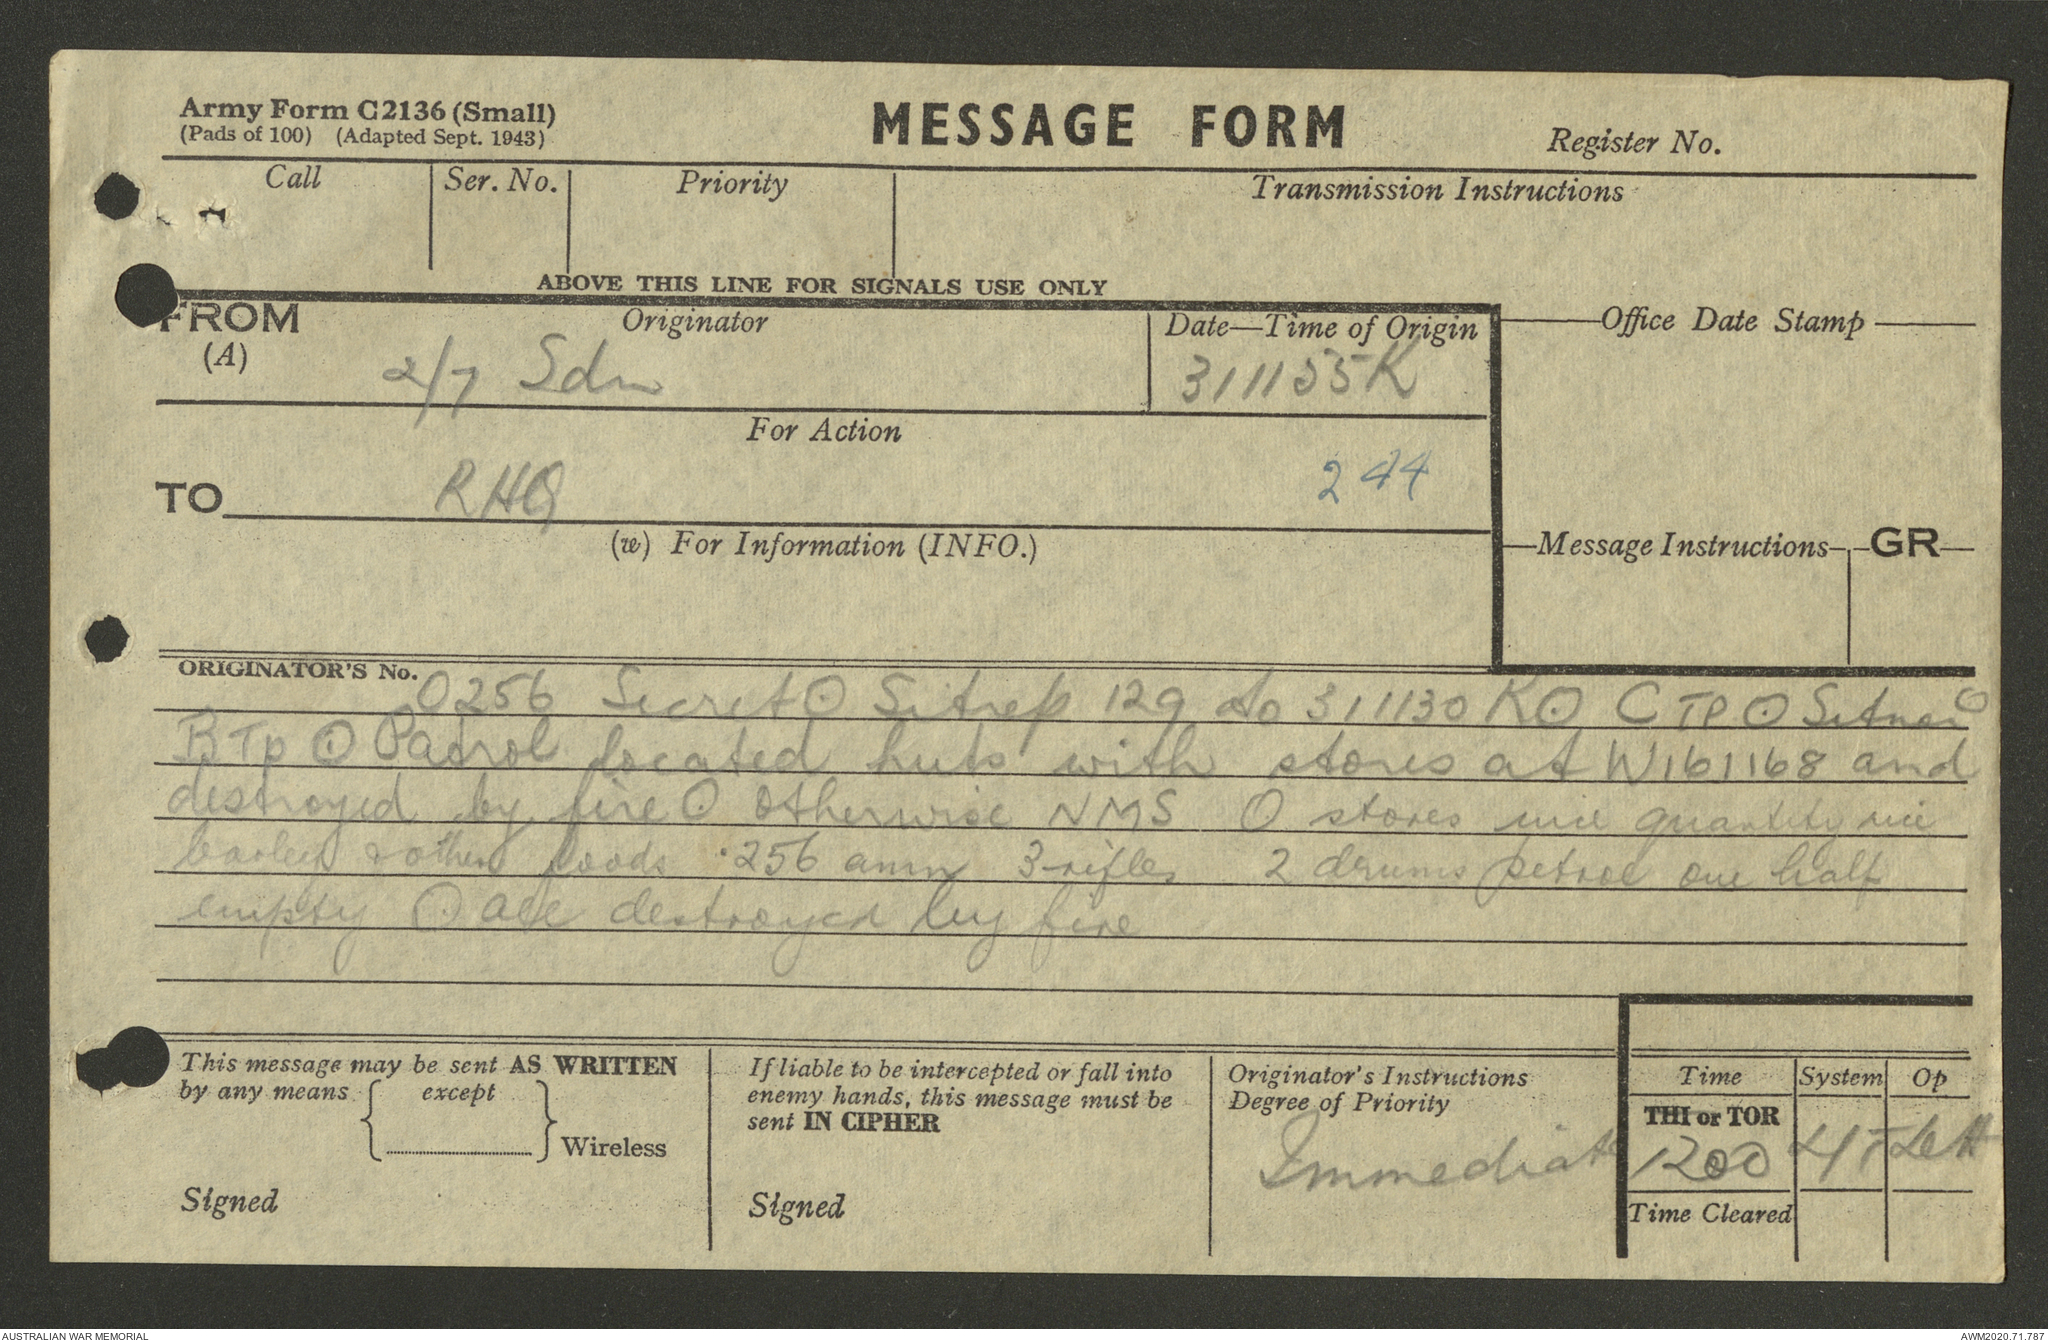 Army Form C2136 (Small)
(Pads of 100) (Adapted Sept. 1943)
MESSAGE FORM
Register No.
Call
Ser. No.
Priority
Transmission Instructions
ABOVE THIS LINE FOR SIGNALS USE ONLY
FROM
(A)
Originator
2/7 Sdn
Date—Time of Origin
311155K
Office Date Stamp
For Action
TO
RHQ
244
(w) For Information (INFO.)
Message Instructions
GR
ORIGINATOR'S No.
O256 Secret O Sitrep 129 to 311130 K O C TP O Sitnor O
B Tp O Patrol located huts with stores at W161168 and
destroyed by fire O otherwise NMS O stores quantity
barley & other foods .256 amn 3 rifles 2 drums petrol one half
empty O all destroyed by fire
This message may be sent AS WRITTEN
by any means except
Wireless
Signed
If liable to be intercepted or fall into
enemy hands, this message must be
sent IN CIPHER
Signed
Originator's Instructions
Degree of Priority
Immediate
Time
System
Op
THI or TOR
1200
Time Cleared
AUSTRALIAN WAR MEMORIAL
AWM2020.71.787